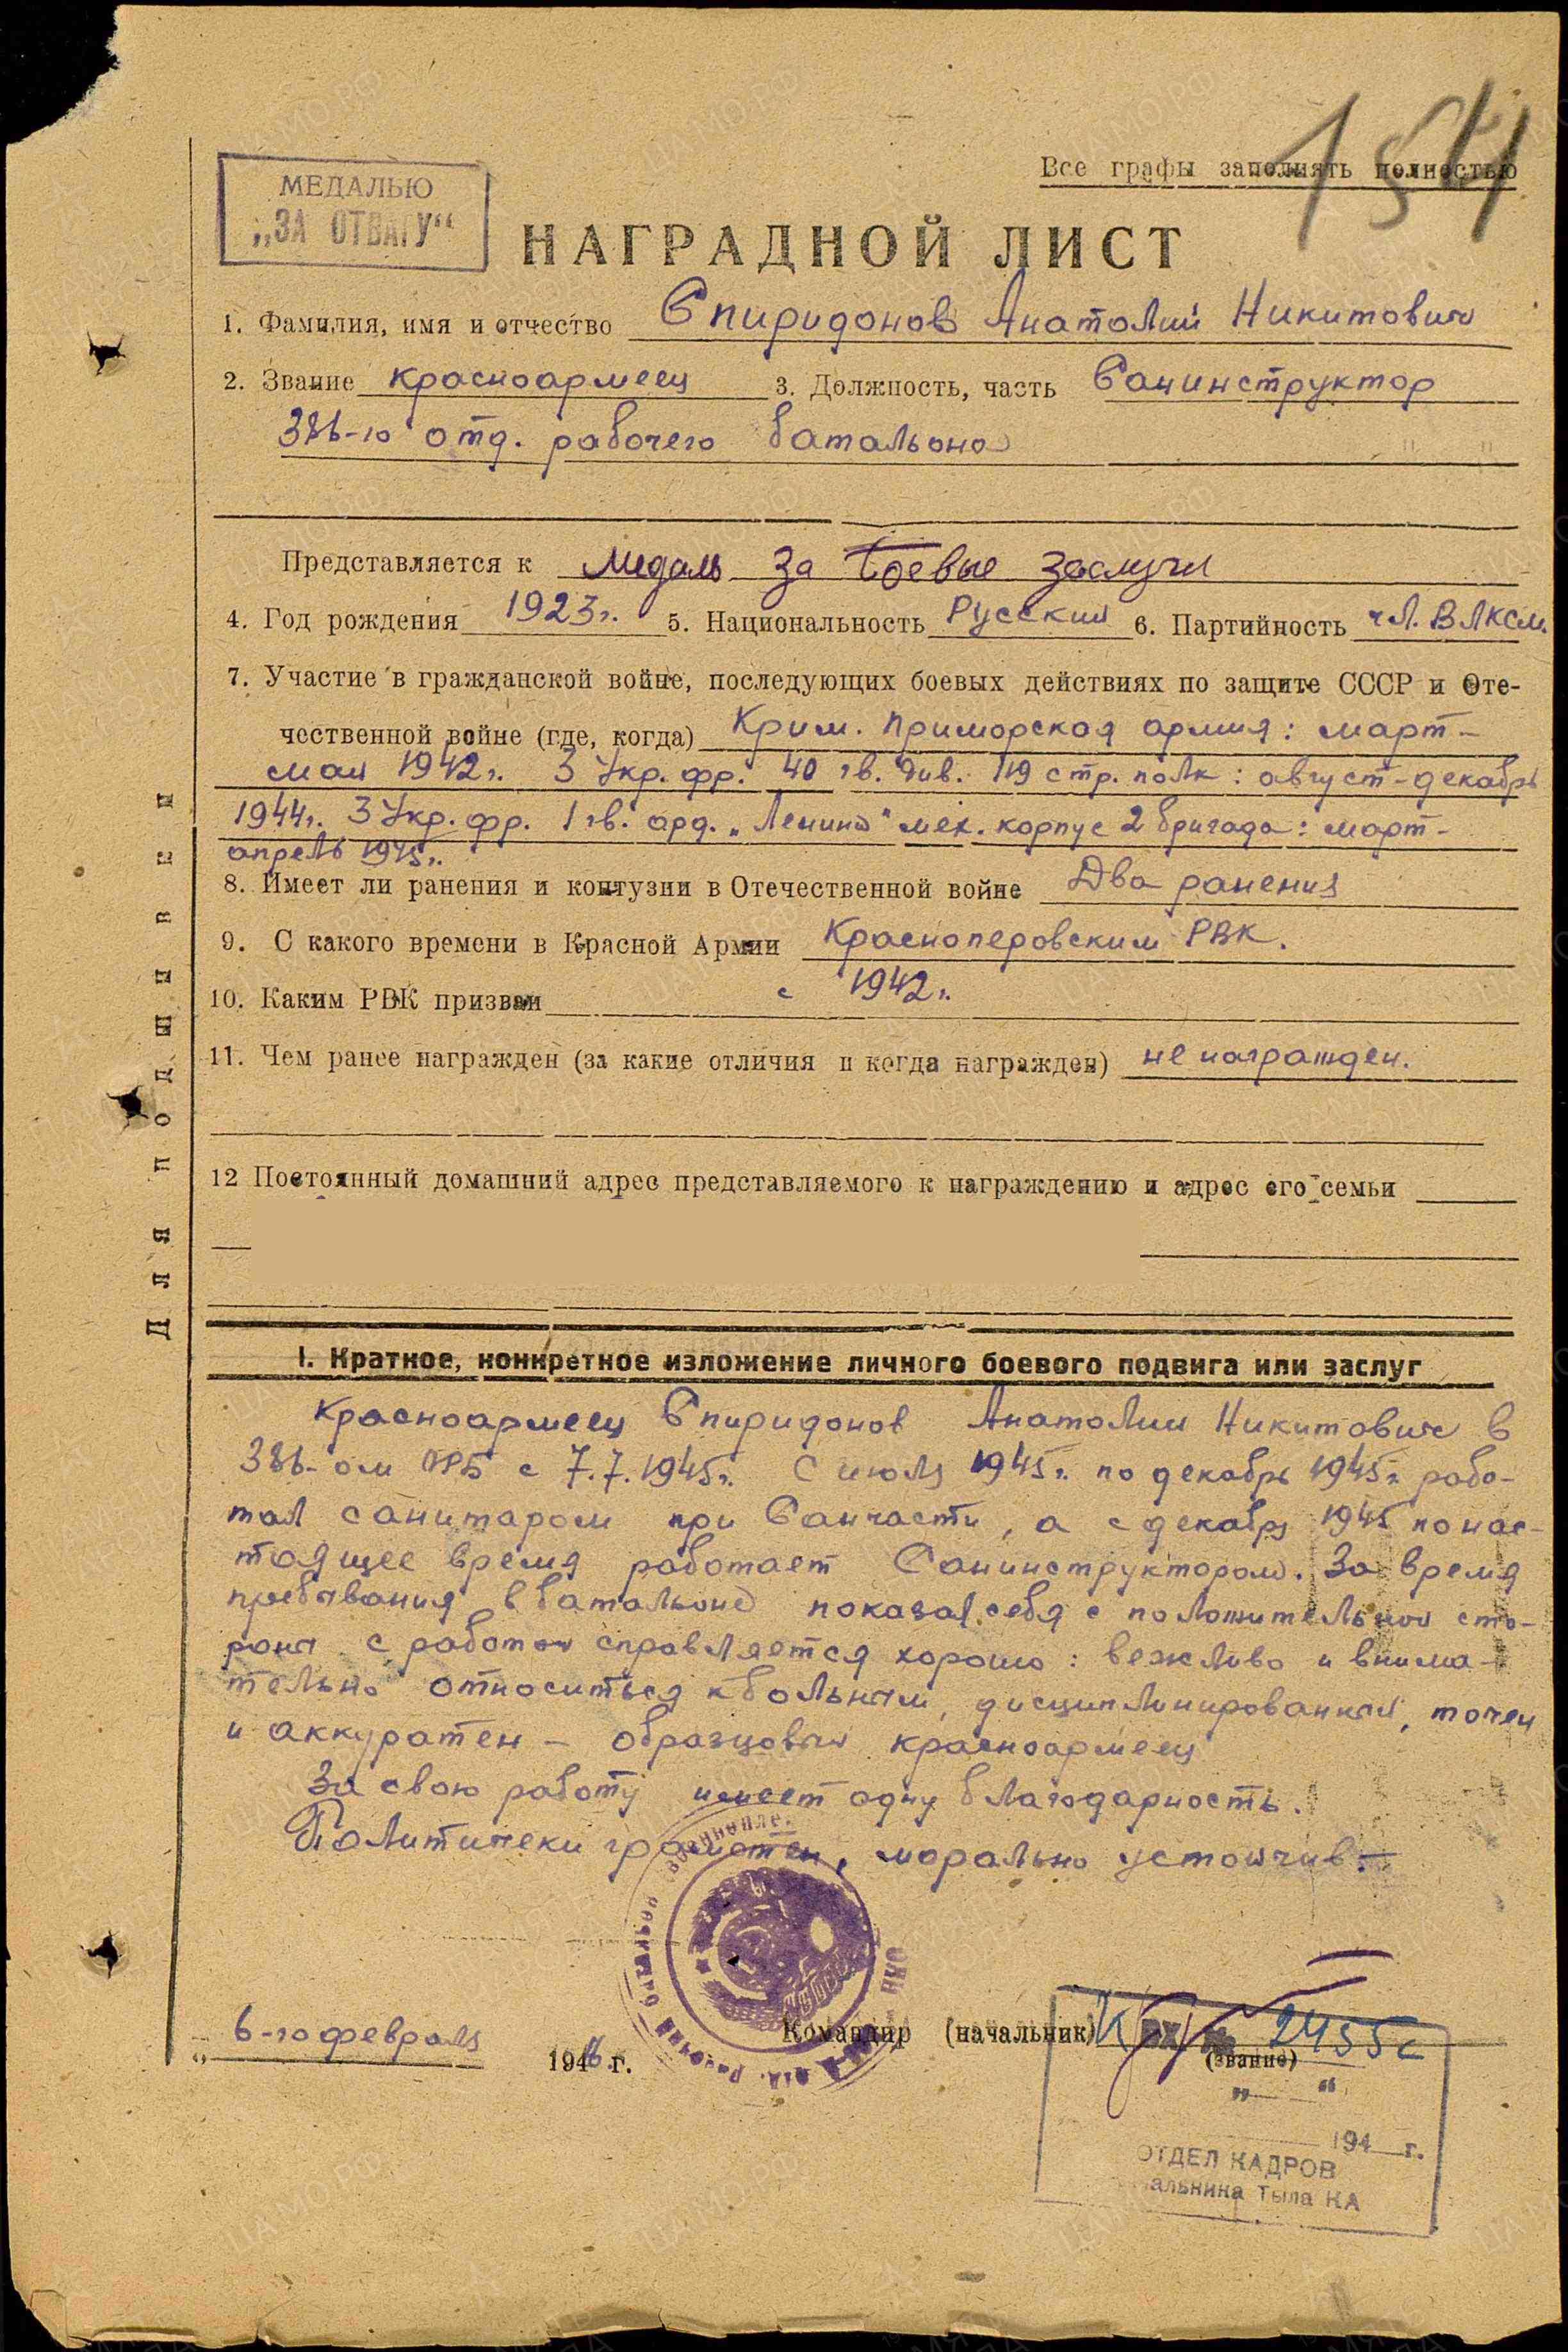 154
Все графы заполнять полностью
МЕДАЛЬЮ
„ЗА ОТВАГУ“
НАГРАДНОЙ ЛИСТ
1. Фамилия, имя и отчество Спиридонов Анатолий Никитович
2. Звание красноармеец 3. Должность, часть Санинструктор
386-го отд. рабочего батальона
Представляется к Медаль За Боевые заслуги
4. Год рождения 1923г. 5. Национальность Русский 6. Партийность чл. ВЛКСМ.
7. Участие в гражданской войне, последующих боевых действиях по защите СССР и Оте-
чественной войне (где, когда) Крим. Приморская армия: март-
май 1942г. 3 Укр. фр. 40 гв. див. 119 стр. полк: август-декабрь
1944г. 3 Укр. фр. 1 гв. орд. „Ленина“ мех. корпус 2 бригада: март-
апрель 1945г.
8. Имеет ли ранения и контузии в Отечественной войне Два ранения
9. С какого времени в Красной Армии Красноперовским РВК.
10. Каким РВК призван с 1942г.
11. Чем ранее награжден (за какие отличия и когда награжден) не награжден.
12 Постоянный домашний адрес представляемого к награждению и адрес его семьи
Для подшивки
I. Краткое, конкретное изложение личного боевого подвига или заслуг
Красноармеец Спиридонов Анатолий Никитович в
386-ом ОРБ с 7.7.1945г. С июля 1945г. по декабрь 1945г. рабо-
тал санитаром при Санчасти, а с декабря 1945 по нас-
тоящее время работает Санинструктором. За время
пребывания в батальоне показал себя с положительной сто-
роны с работой справляется хорошо: вежливо и внима-
тельно относиться к больным, дисциплинированный, точен
и аккуратен – образцовый красноармеец
За свою работу имеет одну благодарность.
Политически грамотен, морально устойчив.
6-го февраля 1946 г.
Командир (начальник)
(звание)
ВХ № 2455с
„ “
194 г.
ОТДЕЛ КАДРОВ
альника Тыла КА